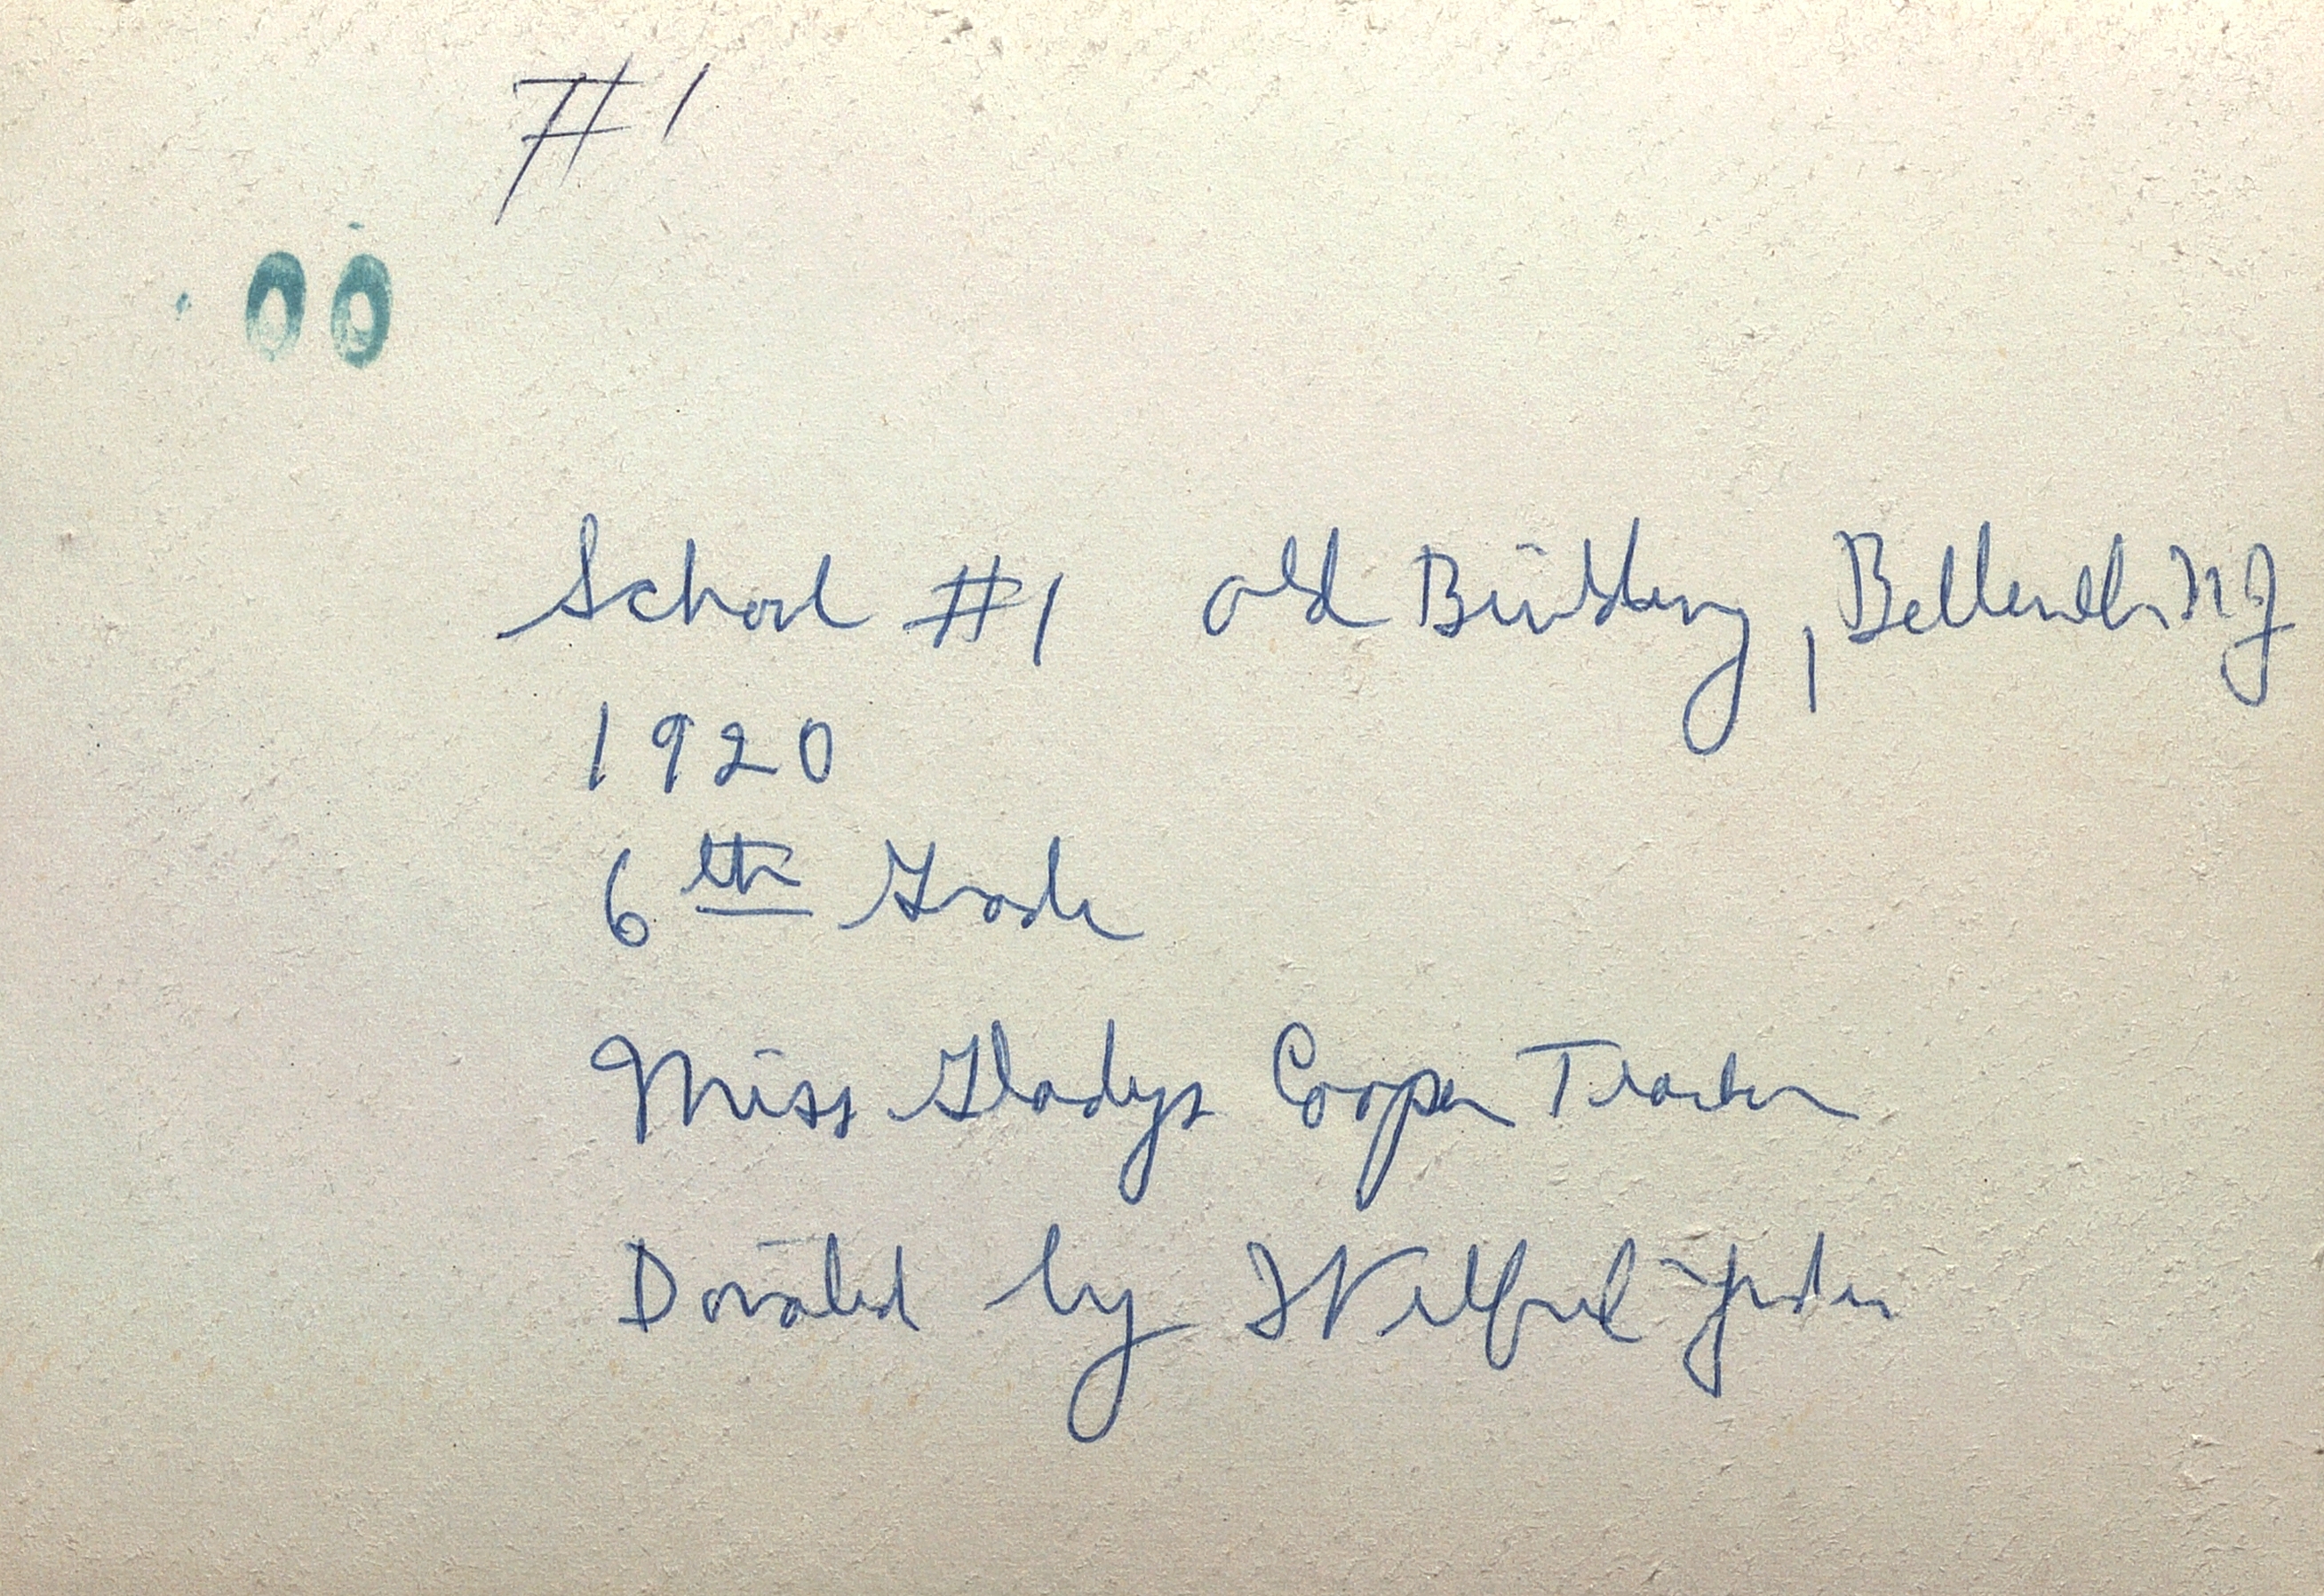 #1
00
School #1 old Building, Belleville NJ
1920
6th Grade
Miss Gladys Cooper Teacher
Donated by Wilfred